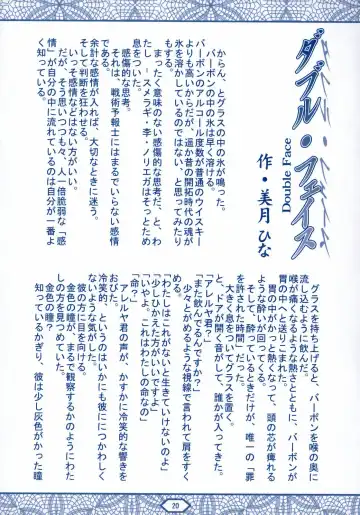 ダブル・フェイス
Double Face
作・美月ひな
からん、とグラスの中の氷が鳴った。
バーボンの中の氷は早く溶ける。
バーボンのアルコール度数が普通のウイスキー
よりも高いからだが、遥か昔の開拓時代の魂が
氷を溶かしているのではない、と思ってみたり
もする。
まったく意味のない感傷的な思考だ、と、わ
たし――スメラギ・李・ノリエガはそっとため
息をついた。
感傷的な思考。
それは、戦術予報士にはまるでいらない感情
である。
余計な感情が入れば、大切なときに迷う。
そして判断を狂わせる。
いっそ感情などはない方がいい。
だが、そう思いつつも、人一倍脆弱な「感
情」が自分の中に流れているのは自分が一番よ
く知っている。
グラスを持ち上げると、バーボンを喉の奥に
流し込むように飲んだ。
喉が痛くなるような熱さとともに、バーボンが
胃の中へと送りこまれた。
胃の中がかっと熱くなって、頭の芯が痺れる
ような酔いが回ってくる。
そして、酔っているときだけが、唯一の「罪
を許された時間」だった。
大きく息をついてグラスを置く。
と、ドアが開く音がして、誰かが入ってきた。
「また飲んでるんですか？」
「アレルヤ君？」
少々とがめるような視線で言われて肩をすく
める。
「わたしはこれがないと生きていけないのよ」
「少しひかえた方がいいですよ」
「いやよ。これはわたしの命なの」
「命？」
アレルヤ君の声が、かすかに冷笑的な響きを
おびた。
冷笑的、というのはいかにも彼ににつかわしく
ないような気がした。
彼の方に目を向ける。
金色の瞳が、まるで観察するかのようにわた
しの方を見つめていた。
金色の瞳？
知っているかぎり、彼は少し灰色がかった瞳
20